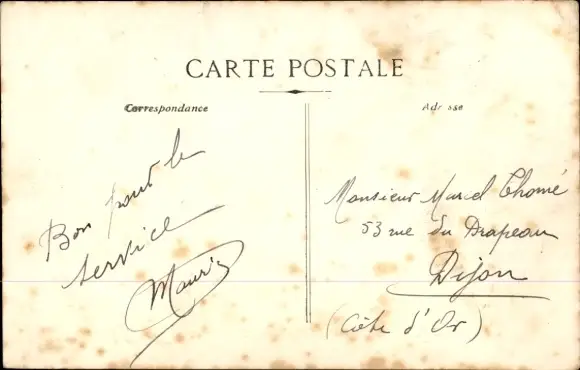 CARTE POSTALE
Correspondance
Adresse
Bon pour le
service
Mauric
Monsieur Marcel Thomé
53 rue du Drapeau
Dijon
(Côte d'Or)